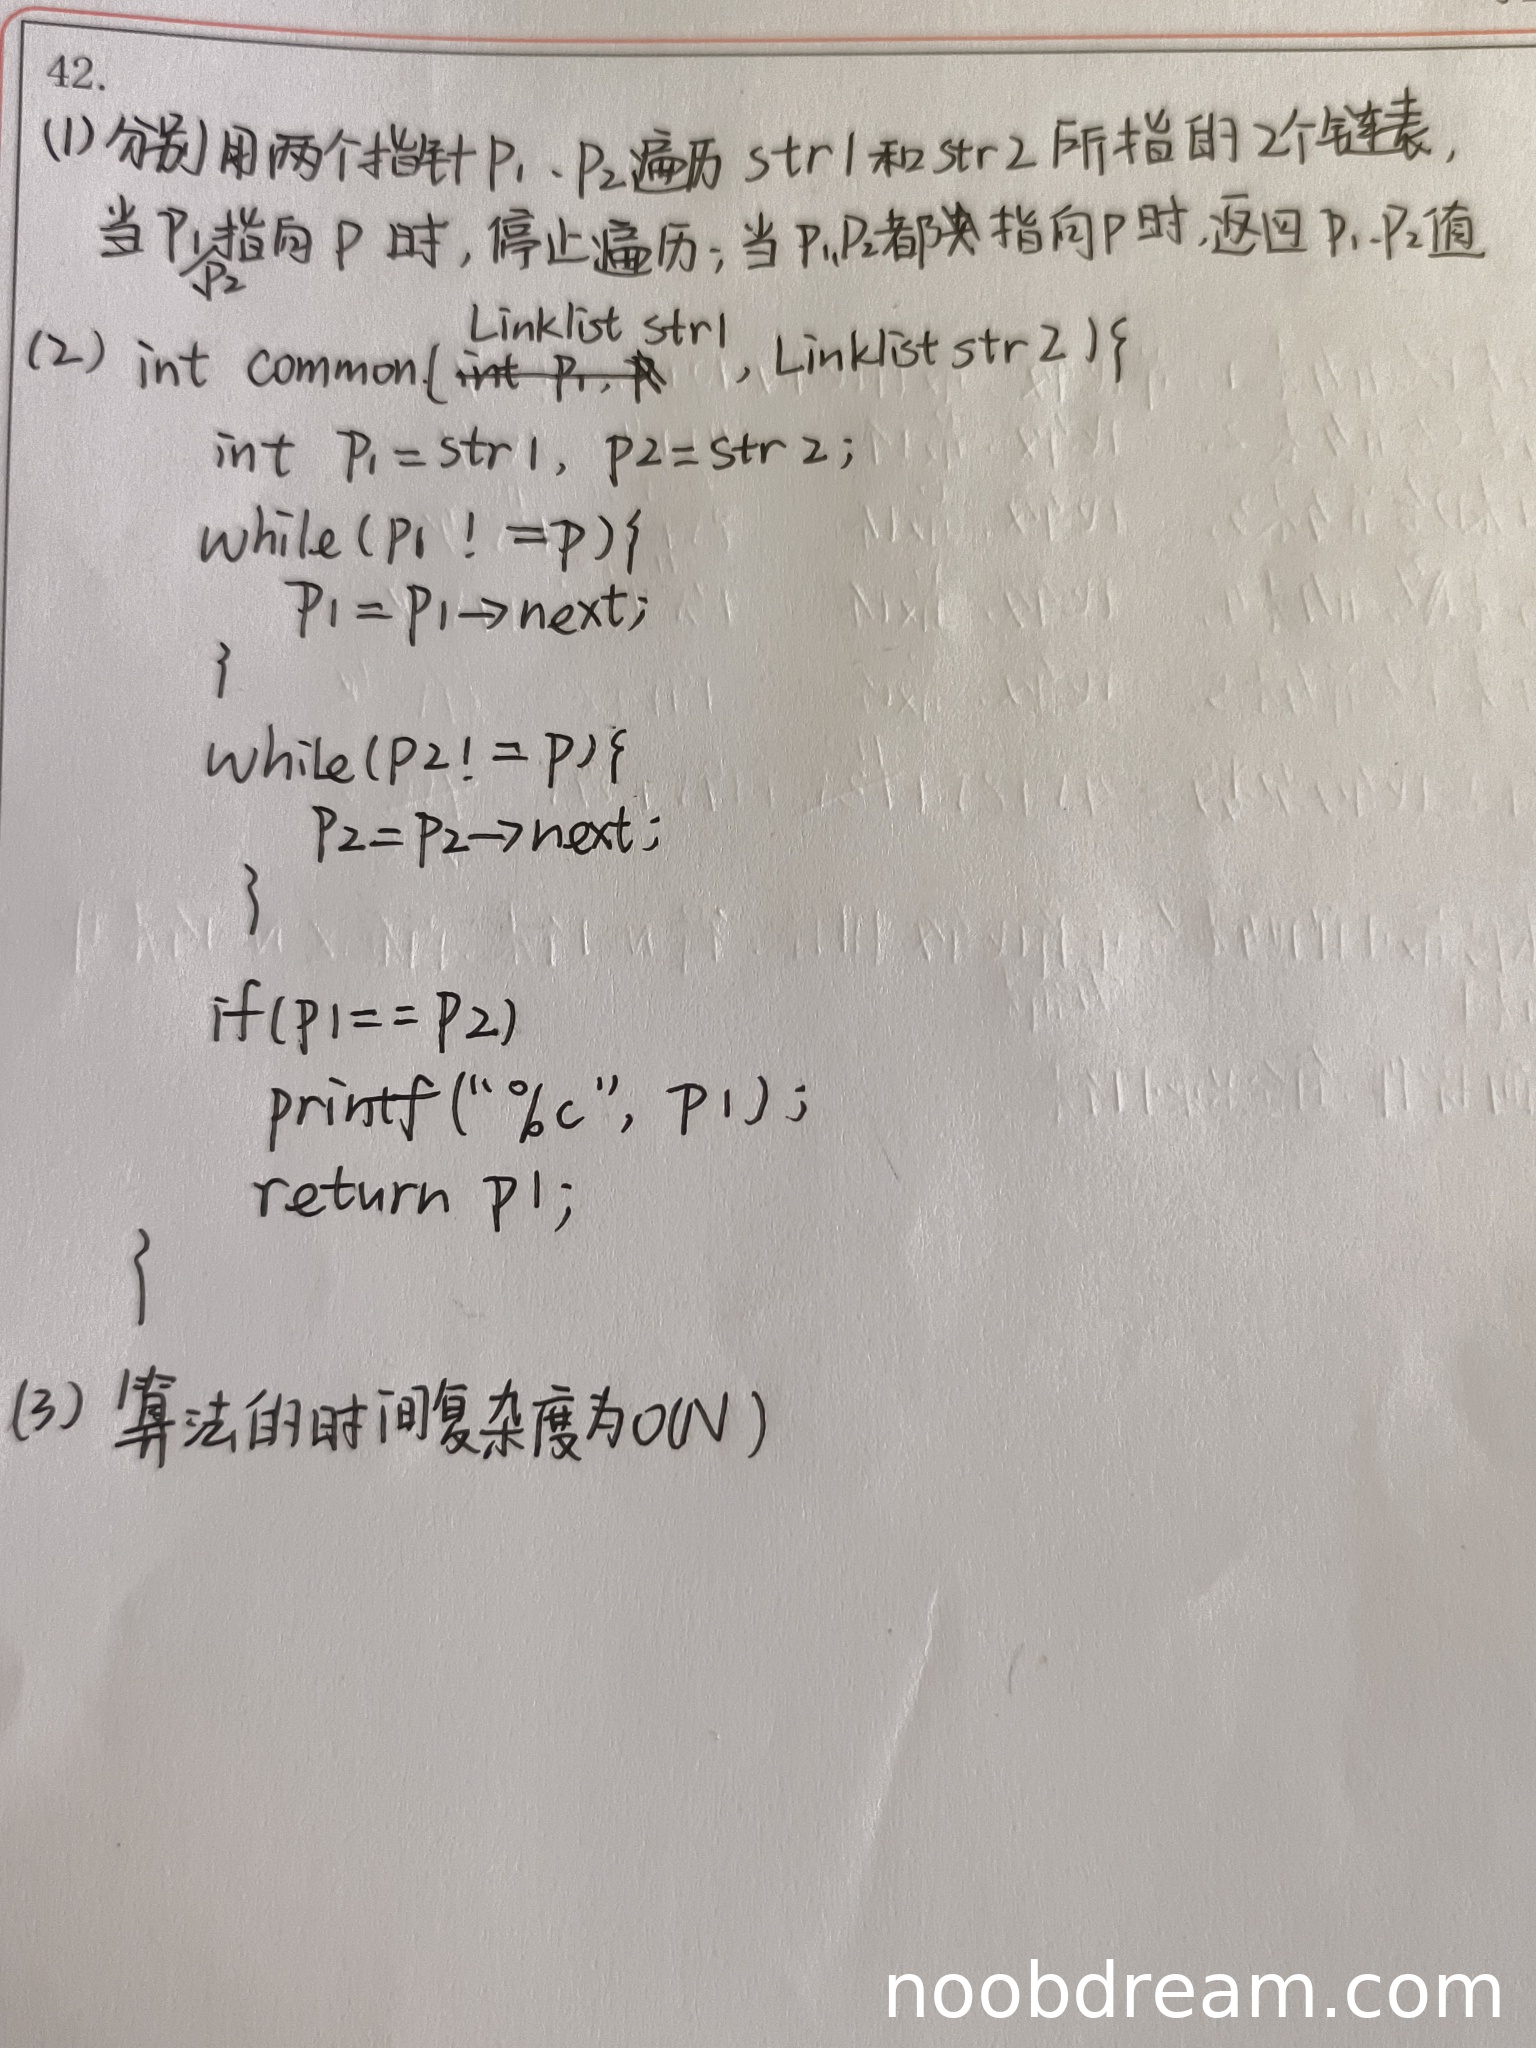 42.
(1) 分别用两个指针P1、P2遍历 str1和str2所指的2个链表,
当P1、P2指向P时,停止遍历;当P1、P2都指向P时,返回P1、P2值
(2) int common(Linklist str1, Linklist str2){
int P1=str1, P2=str2;
while(P1!=P){
P1=P1→next;
}
while(P2!=P){
P2=P2→next;
}
if(P1==P2)
printf("%c", P1);
return P1;
}
(3) 算法的时间复杂度为O(N)
noobdream.com